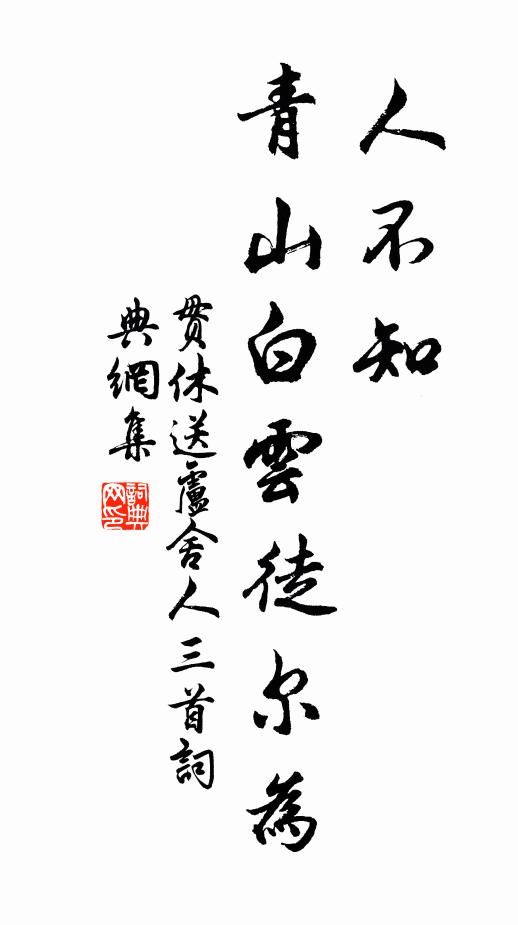 人不知
青山白雲徒尔為
贯休送盧舍人三首詞
典網集
詞典
网印